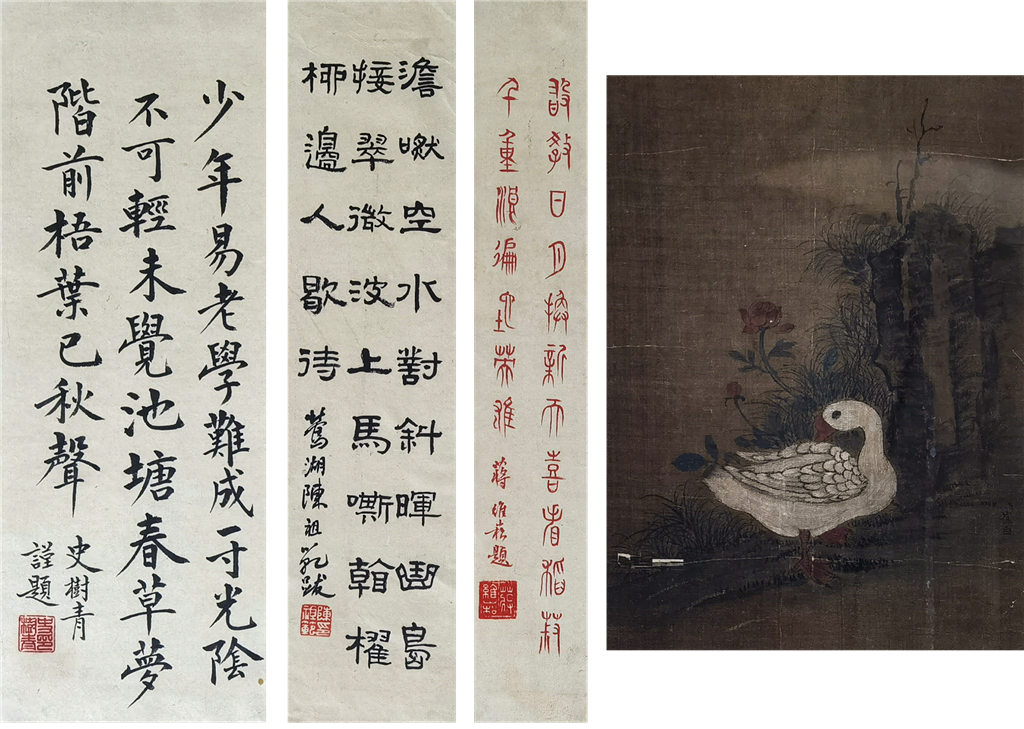 少年易老學難成一寸光陰
不可輕未覺池塘春草夢
階前梧葉已秋聲
史樹青
謹題
澹空水對斜暉島
接翠微波上馬嘶櫂
柳邊人歇待
鶯湖陳祖範跋
敢教日月換新天喜看稻菽
千重浪遍地英雄
蔣維崧題